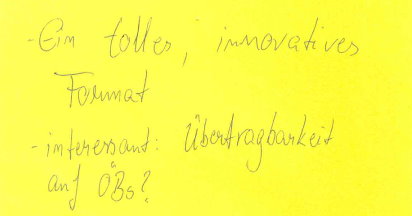 - Ein tolles, innovatives
Format
- interessant: Übertragbarkeit
auf ÖBs?